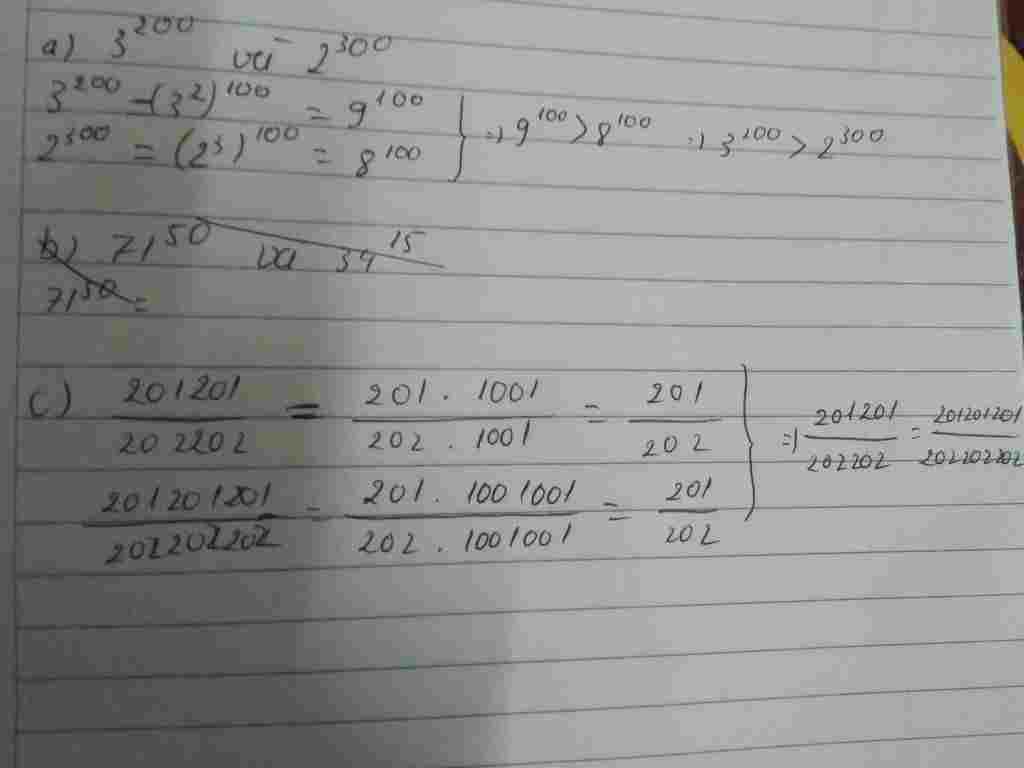 a) 3^200 và 2^300
3^200 = (3^2)^100 = 9^100
2^300 = (2^3)^100 = 8^100 } => 9^100 > 8^100 => 3^100 > 2^300
b) 71^50 và 37^15
71^50 =
c) 201201/202202 = 201 . 1001/202 . 1001 = 201/202
201201201/202202202 = 201 . 1001001/202 . 1001001 = 201/202 } => 201201/202202 = 201201201/202202202